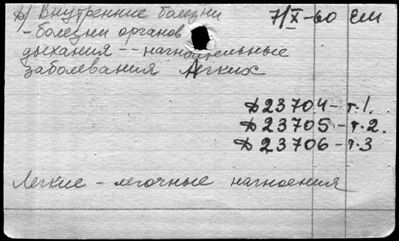 б) Внутренние болезни 7/X-60 ем
- болезни органов
дыхания -- нагноительные
заболевания легких
Д 23704 - т.1.
Д 23705 - т.2.
Д 23706 - т.3
Легкие - легочные нагноения